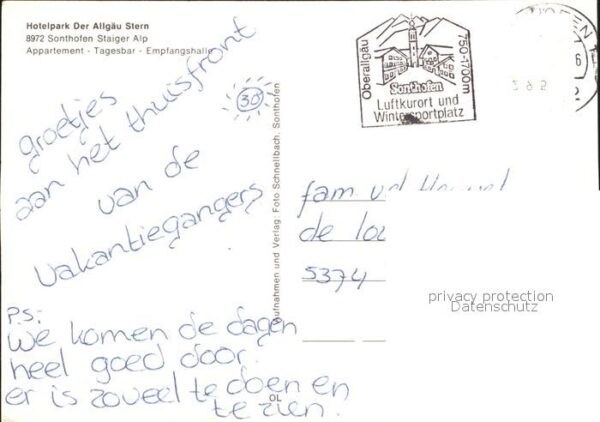 Hotelpark Der Allgäu Stern
8972 Sonthofen Staiger Alp
Appartement - Tagesbar - Empfangshalle
groetjes
aan het thuisfront
van de
vakantiegangers
30
P.S:
We komen de dagen
heel goed door.
er is zoveel te doen en
te zien.
Aufnahmen und Verlag: Foto Schnellbach, Sonthofen
OL
Oberallgäu
750-1700m
Sonthofen
Luftkurort und
Wintersportplatz
6
fam
de
5374
privacy protection
Datenschutz